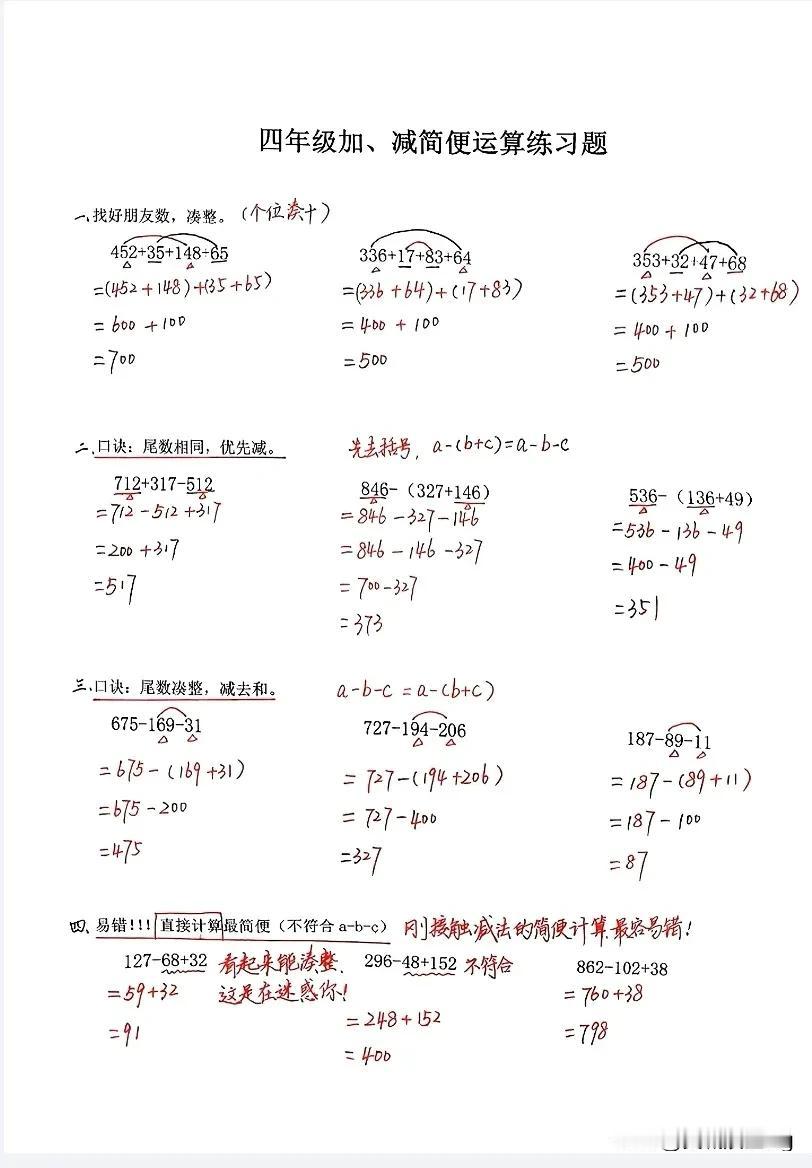 四年级加、减简便运算练习题
一、找好朋友数，凑整。（个位凑十）
452+35+148+65
=(452+148)+(35+65)
=600+100
=700
336+17+83+64
=(336+64)+(17+83)
=400+100
=500
353+32+47+68
=(353+47)+(32+68)
=400+100
=500
二、口诀：尾数相同，优先减。 先去括号，a-(b+c)=a-b-c
712+317-512
=712-512+317
=200+317
=517
846-（327+146）
=846-327-146
=846-146-327
=700-327
=373
536-（136+49）
=536-136-49
=400-49
=351
三、口诀：尾数凑整，减去和。 a-b-c=a-(b+c)
675-169-31
=675-(169+31)
=675-200
=475
727-194-206
=727-(194+206)
=727-400
=327
187-89-11
=187-(89+11)
=187-100
=87
四、易错!!!直接计算最简便（不符合a-b-c） 刚接触减法的简便计算最容易错！
127-68+32 看起来能凑整，
这是在迷惑你！
=59+32
=91
296-48+152 不符合
=248+152
=400
862-102+38
=760+38
=798